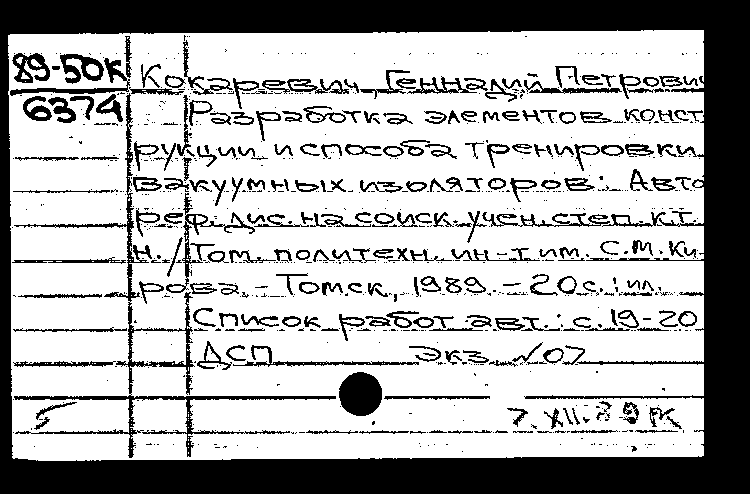 89-50К Кокаревич, Геннадий Петрович
6374 Разработка элементов конст
рукции и способа тренировки
вакуумных изоляторов: Авто
реф. дис. на соиск. учен. степ. к.т.
н. / Том. политехн. ин-т им. С.М. Ки-
рова. - Томск, 1989. - 20 с. : ил.
Список работ авт.: с. 19-20
ДСП Экз №07
5 7.XII.89